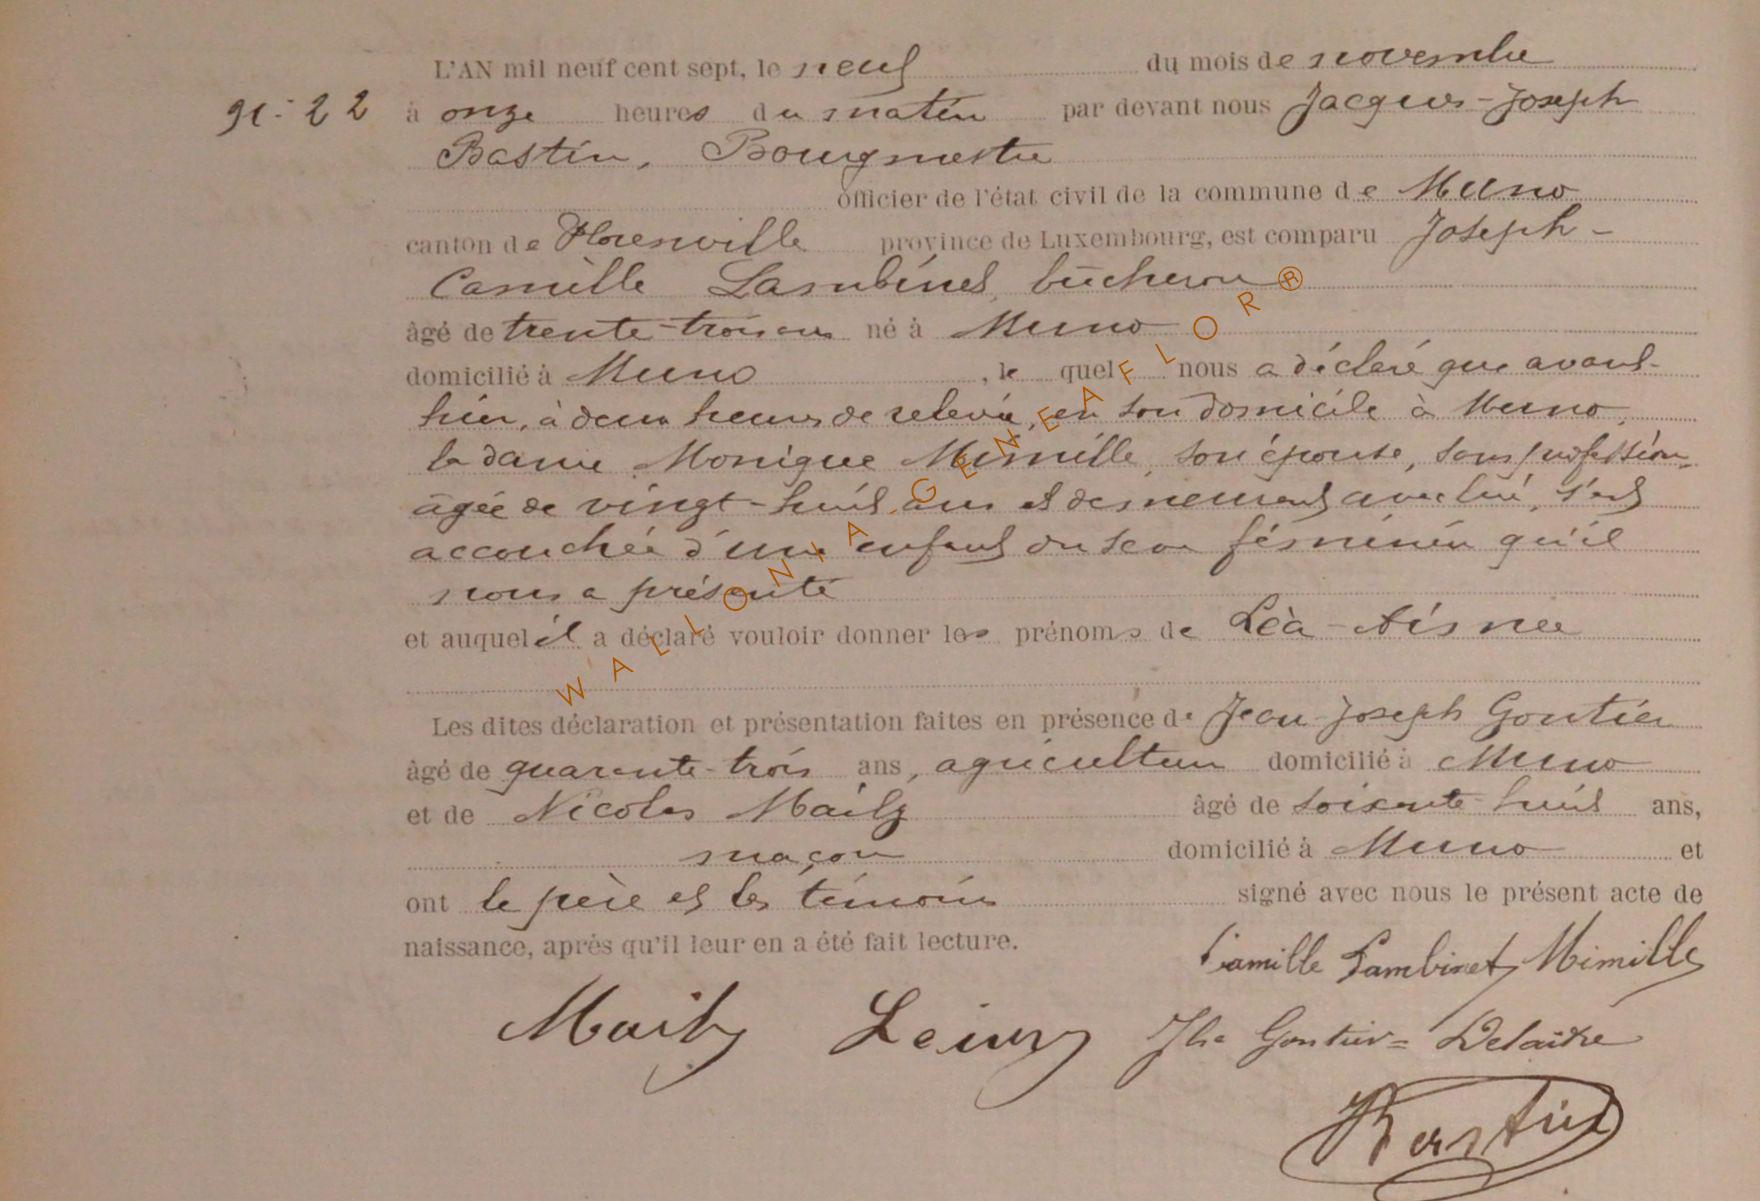 L'AN mil neuf cent sept, le neuf du mois de novembre
N: 22 à onze heures du matin par devant nous Jacques-Joseph
Bastin, Bourgmestre
officier de l'état civil de la commune de Muno
canton de Florenville province de Luxembourg, est comparu Joseph-
Camille Lambinet, bûcheron
âgé de trente-trois ans né à Muno
domicilié à Muno, le quel nous a déclaré que avant-
hier, à deux heures de relevée, en son domicile à Muno,
la dame Monique Mimille, son épouse, sans profession,
âgée de vingt-huit ans et demeurant avec lui, s'est
accouchée d'un enfant du sexe féminin qu'il
nous a présenté
et auquel il a déclaré vouloir donner les prénoms de Léa-Aimée
Les dites déclaration et présentation faites en présence de Jean-Joseph Gontier
âgé de quarante-trois ans, agriculteur domicilié à Muno
et de Nicolas Mailz âgé de soixante-huit ans,
maçon domicilié à Muno et
ont le père et les témoins signé avec nous le présent acte de
naissance, après qu'il leur en a été fait lecture.
Camille Lambinet, Mimille
Jh Gontier=Delaitre
Bastin
WALLONIA GENEAFLOR®